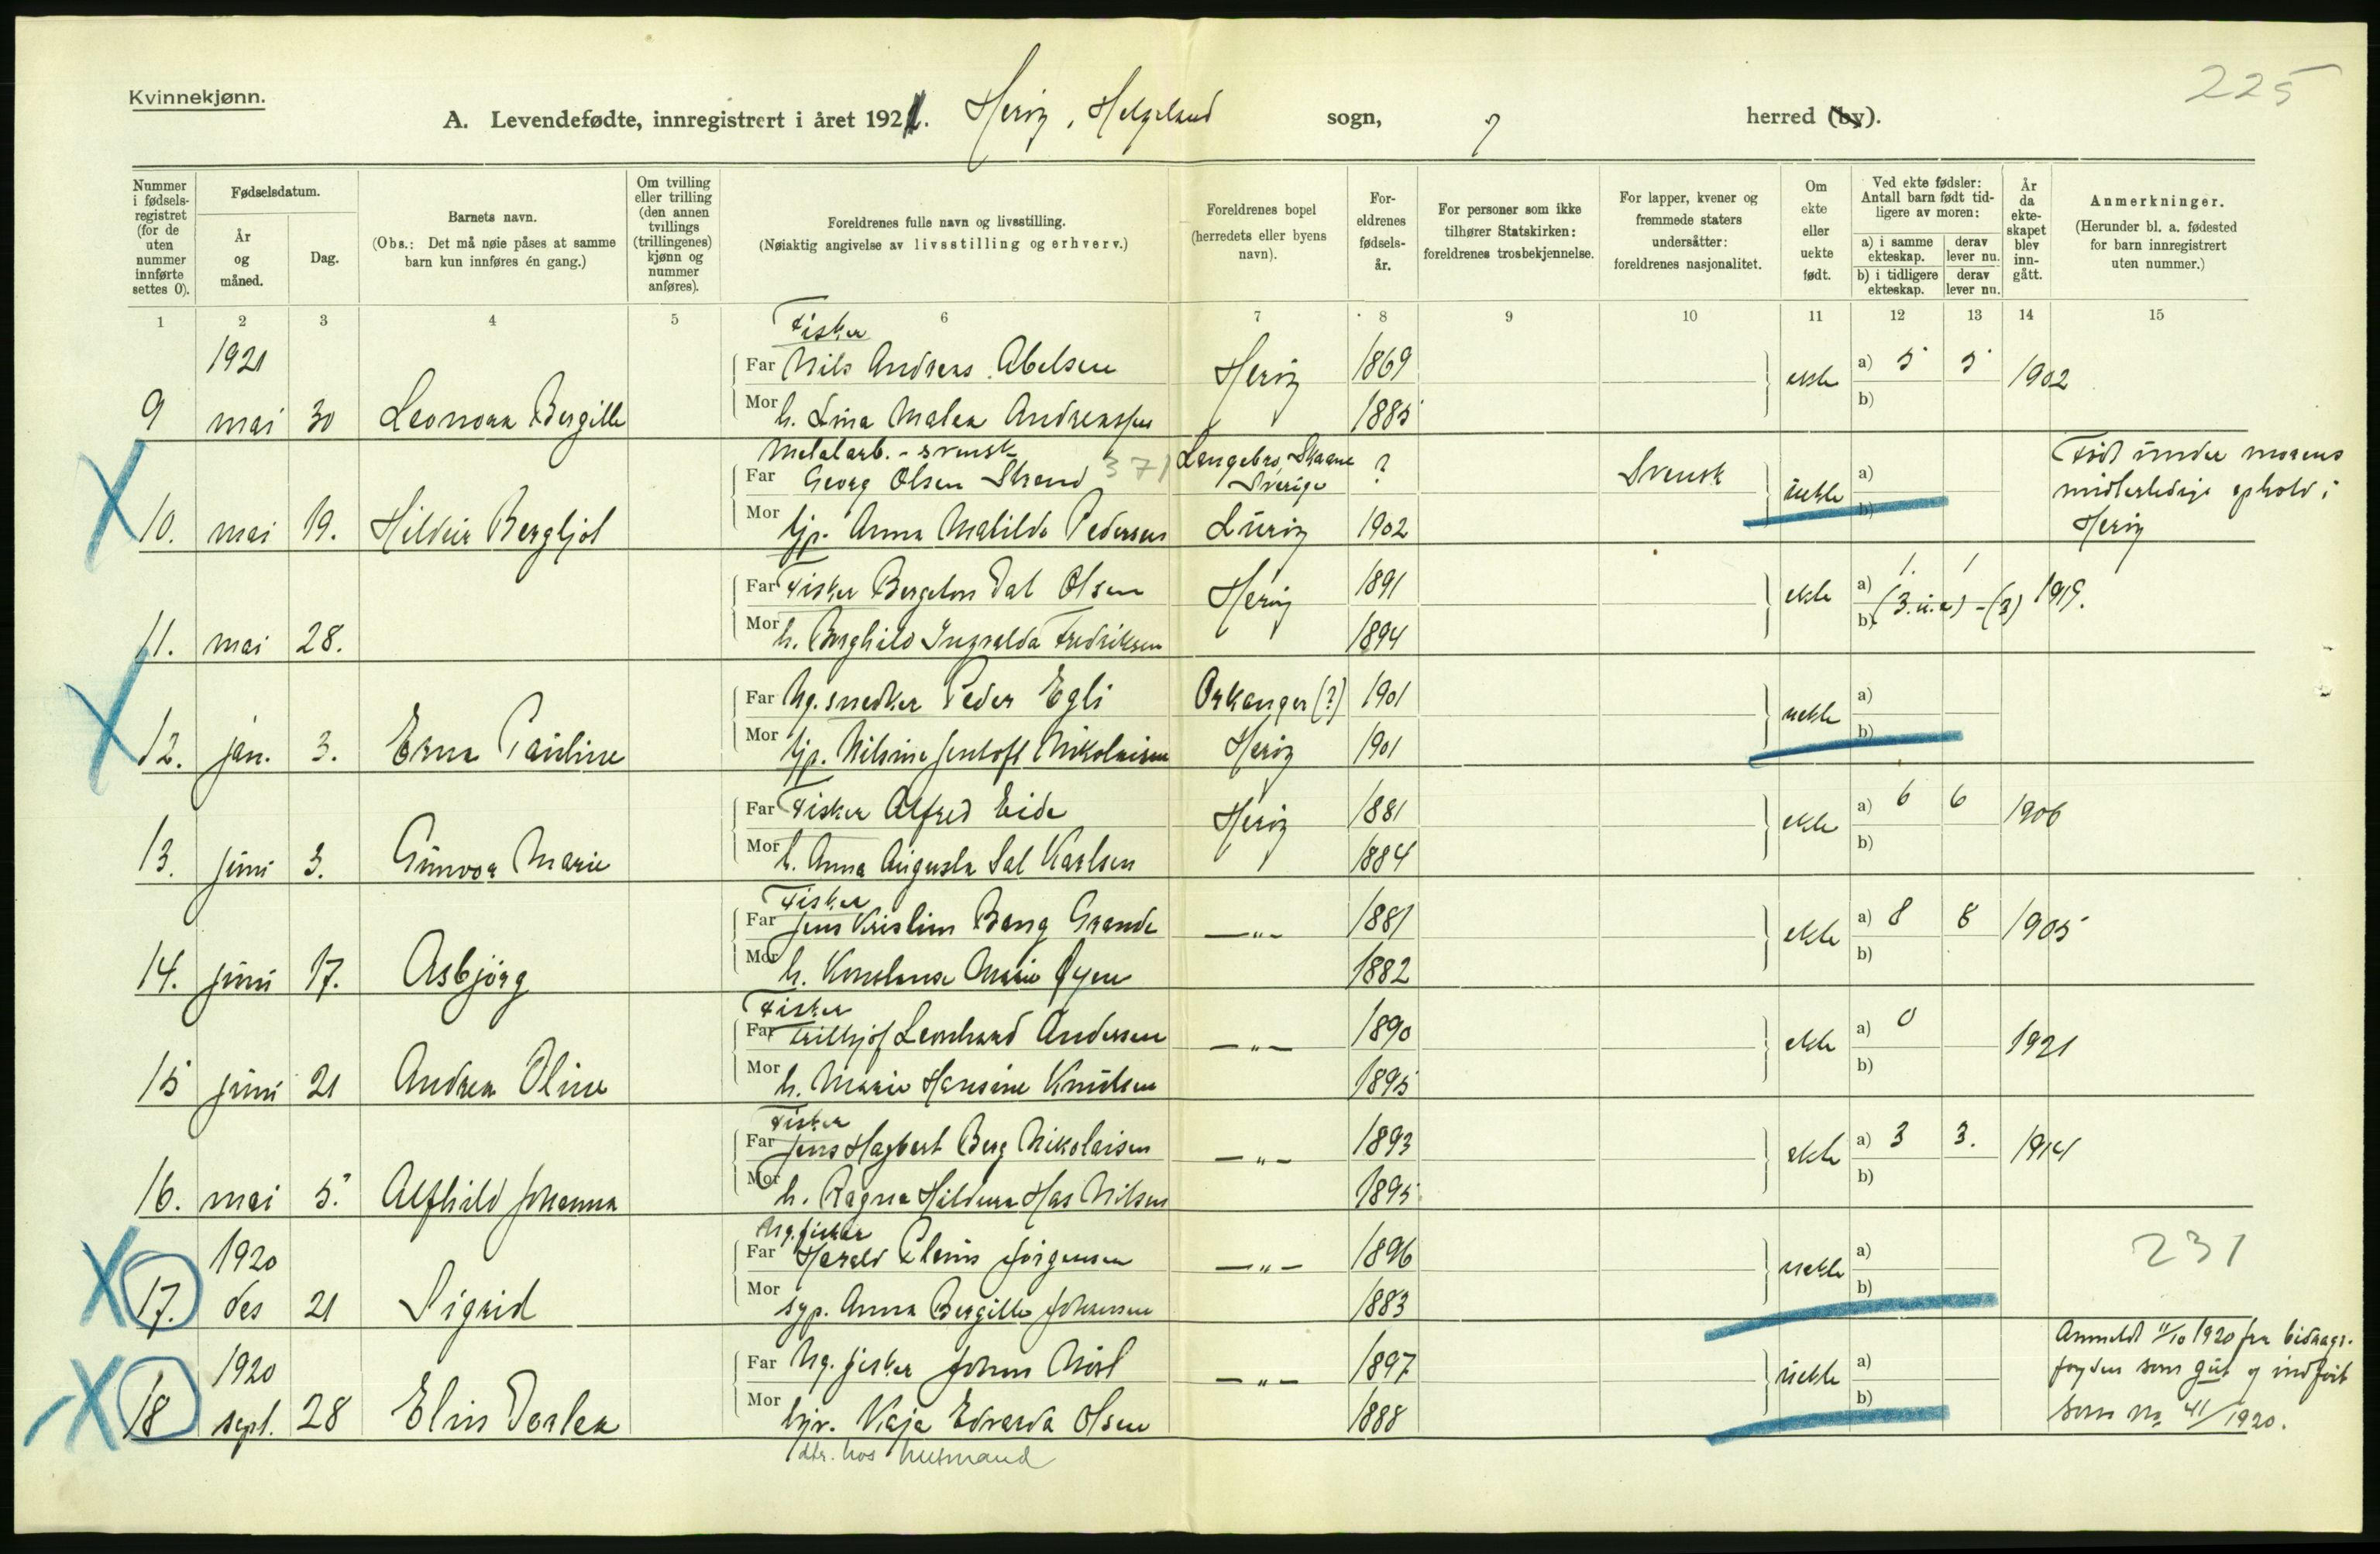 Kvinnekjønn.
225
A. Levendefødte, innregistrert i året 1921. Herøy, Helgeland sogn, herred (by).
Nummer i fødsels-registret (for de uten nummer innførte settes 0).
Fødselsdatum.
År og måned.
Dag.
Barnets navn.
(Obs.: Det må nøie påses at samme barn kun innføres én gang.)
Om tvilling eller trilling (den annen tvillings (trillingenes) kjønn og nummer anføres).
Foreldrenes fulle navn og livsstilling.
(Nøiaktig angivelse av livsstilling og erhverv.)
Foreldrenes bopel (herredets eller byens navn).
For-eldrenes fødsels-år.
For personer som ikke tilhører Statskirken: foreldrenes trosbekjennelse.
For lapper, kvener og fremmede staters undersåtter: foreldrenes nasjonalitet.
Om ekte eller uekte født.
Ved ekte fødsler: Antall barn født tid-ligere av moren:
a) i samme ekteskap.
derav lever nu.
b) i tidligere ekteskap.
derav lever nu.
År da ekte-skapet blev inn-gått.
Anmerkninger.
(Herunder bl. a. fødested for barn innregistrert uten nummer.)
1 2 3 4 5 6 7 8 9 10 11 12 13 14 15
1921
Fisker
Far Nils Andreas Abelsen Herøy 1869 ekte a) 5 5 1902
9 mai 30 Leonora Bergitte Mor h. Lina Malea Andreassen 1885 b)
Metalarb. - svensk
Far Georg Olsen Strand 371 Langebro, Skaane Sverige ? Svensk uekte a) Født under morens midlertidige ophold i Herøy
10. mai 19. Hildur Bergljot Mor tjp. Anna Matilde Pedersen Lurøy 1902 b)
Far Fisker Bergeton Dal Olsen Herøy 1891 ekte a) 1. 1 1919.
11. mai 28. Mor h. Borghild Ingvalda Fredriksen 1894 b) (3.u.e) - (3)
Far Ug. snedker Peder Egli Orkanger (?) 1901 uekte a)
12. jan. 3. Erna Pauline Mor tjp. Nilsine Jentoft Nikolaisen Herøy 1901 b)
Far Fisker Alfred Eide Herøy 1881 ekte a) 6 6 1906
13. juni 3. Gunvor Marie Mor h. Anna Augusta Sal Karlsen 1884 b)
Fisker
Far Jens Kristian Bang Grande —„— 1881 ekte a) 8 8 1905
14. juni 17. Asbjørg Mor h. Konstanse Marie Øyen 1882 b)
Fisker
Far Frithjof Leonhard Andersen —„— 1890 ekte a) 0 1921
15 juni 21 Andrea Oline Mor h. Marie Hansine Knutsen 1895 b)
Fisker
Far Jens Hagbart Berg Nikolaisen —„— 1893 ekte a) 3 3. 1914
16. mai 5. Alfhild Johanna Mor h. Ragna Hildura Has Nilsen 1895 b)
1920
Ug. fisker
Far Harald Jørgensen —„— 1896 uekte a) 231
17. des 21 Sigrid Mor syp. Anna Bergitte Johansen 1883 b)
1920
Far Ug. fisker Johan —„— 1897 uekte a) Anmeldt 11/10 1920 fra bidrags-
fogden som gut og indført
18 sept. 28 Elin Dorlea Mor Kaja Edvarda Olsen 1888 b) som No 41/1920.
dtr. hos husmand